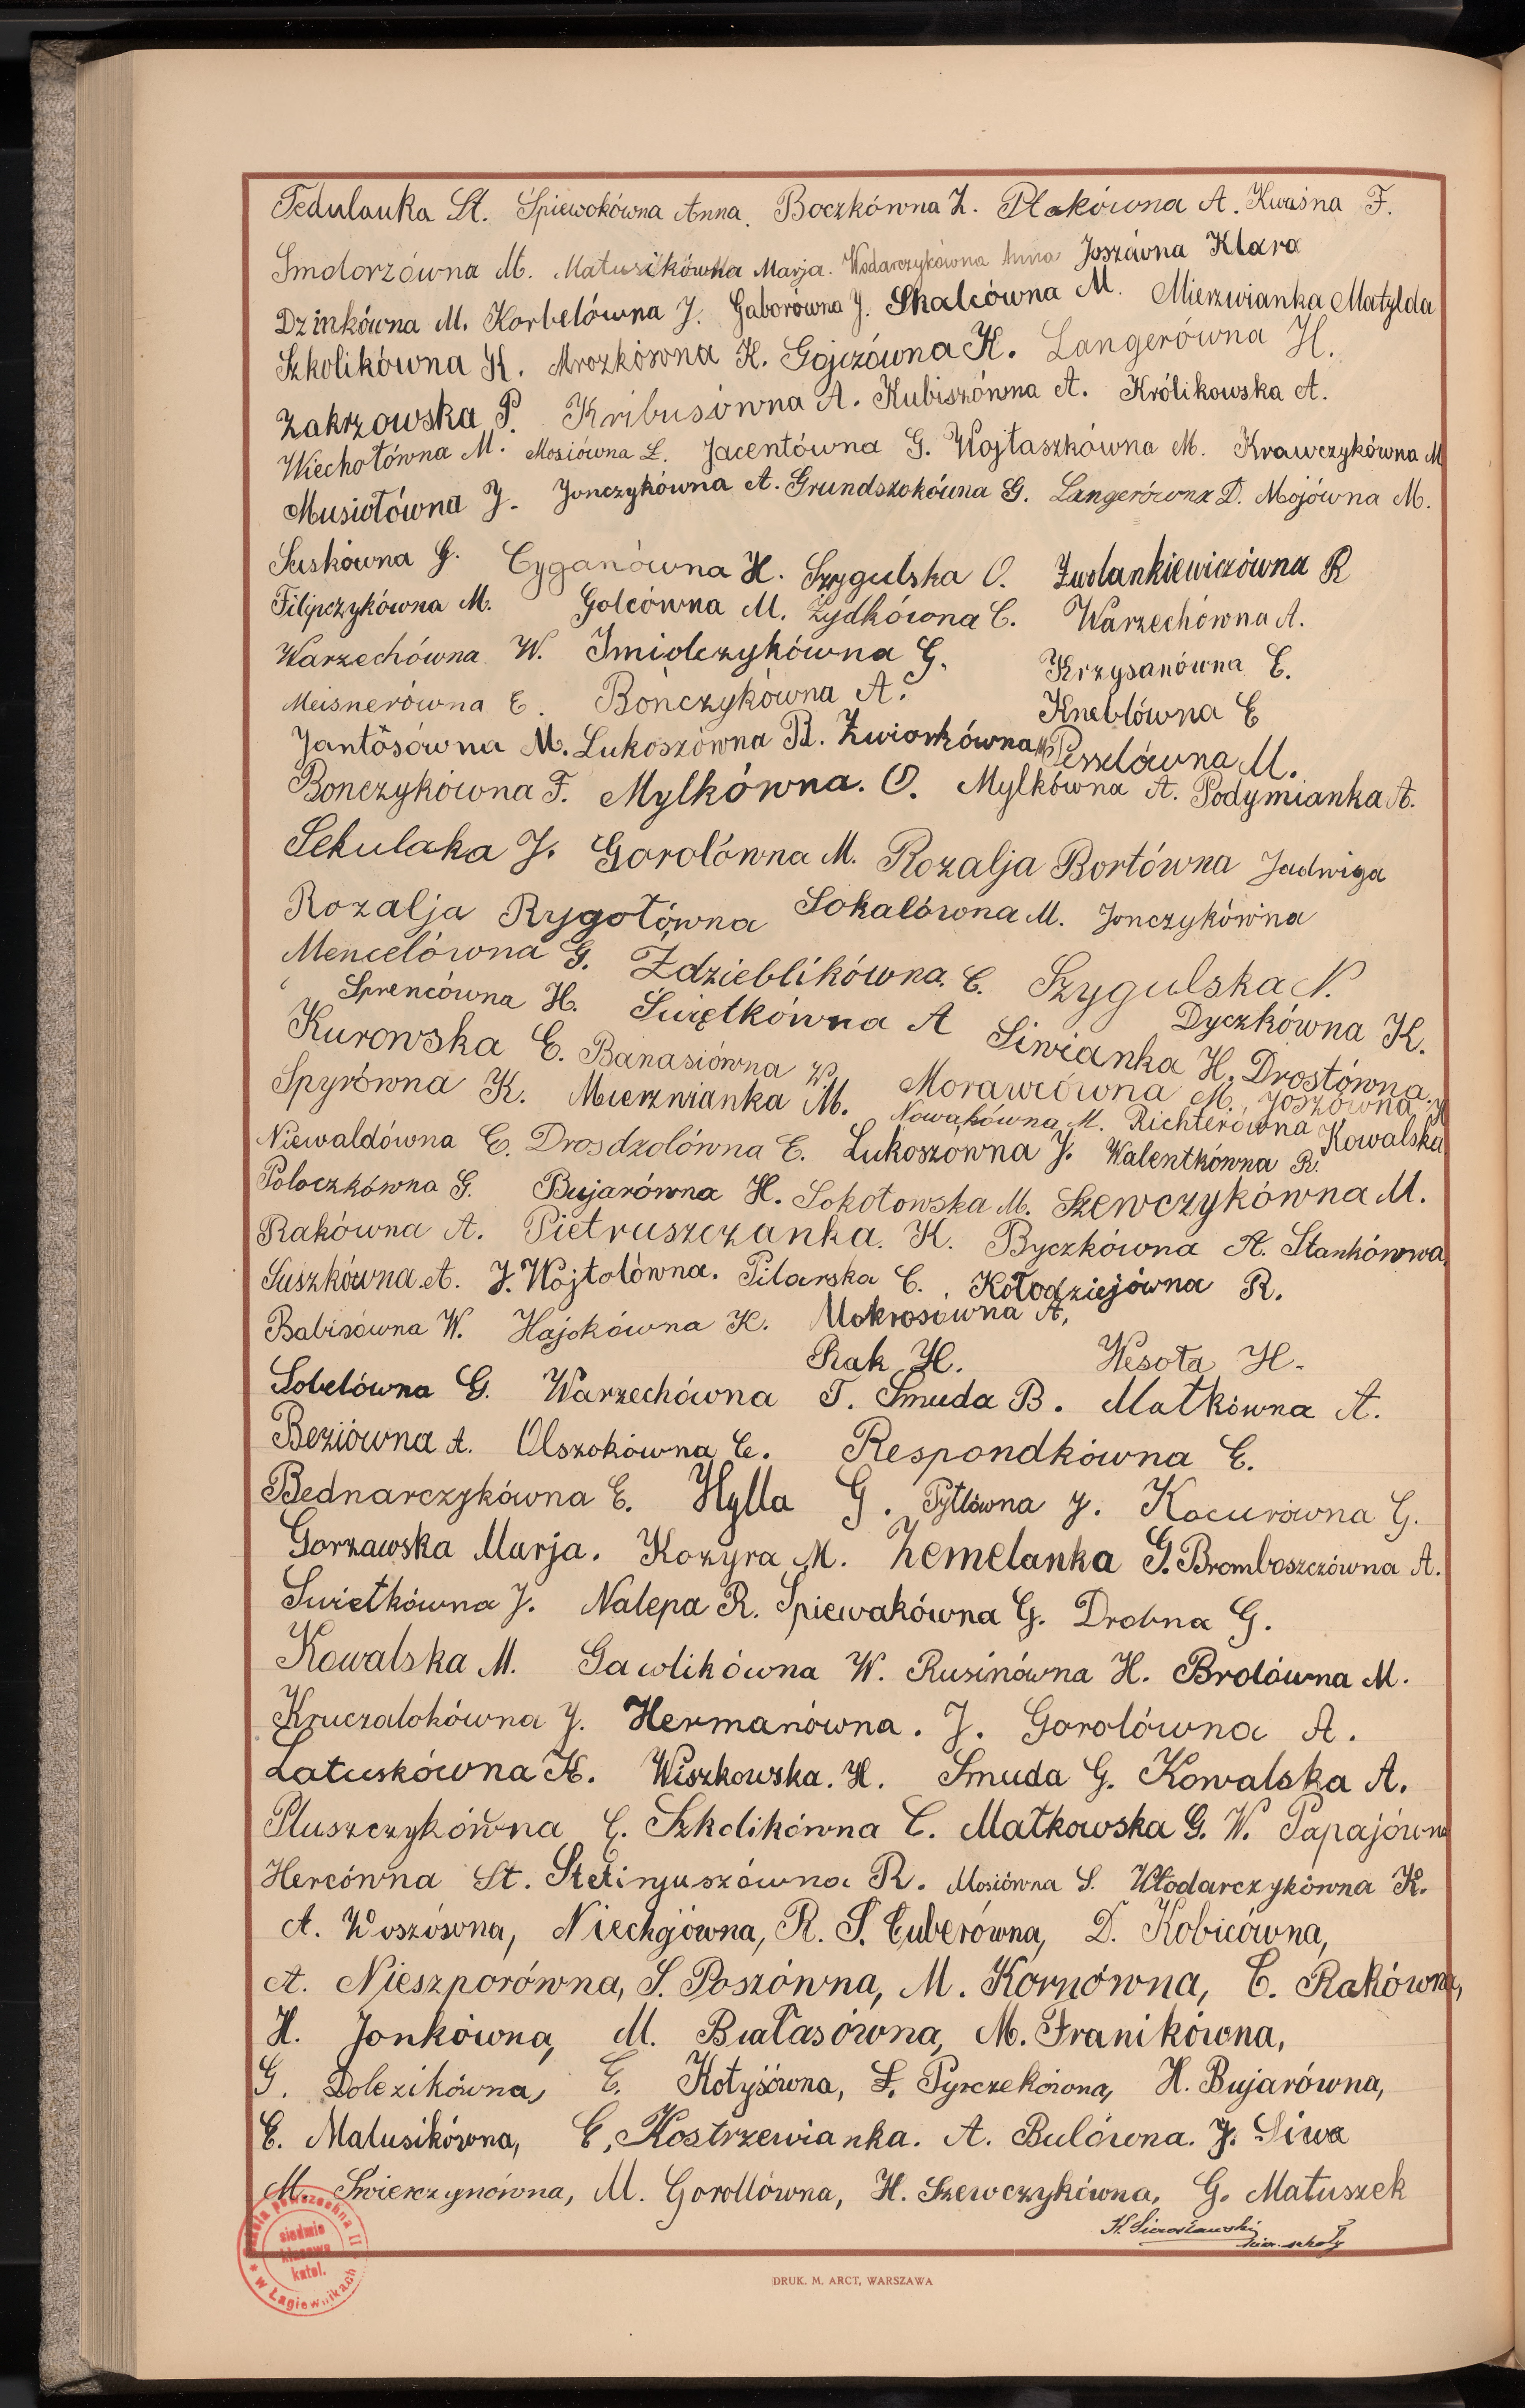 Fedulauka St. Śpiewokówna Anna. Boczkówna Z. Ptakówna A. Kwaśna F.
Smolorzówna M. Matusikówna Marja. Wodarczykówna Anna Joszówna Klara
Dzinkówna M. Korbelówna J. Gaborówna J. Skalcówna M. Mierzwianka Matylda
Szkolikówna K. Mrozkówna K. Gojczówna K. Langerówna H.
Zakrzowska P. Kribusówna A. Kubiszówna A. Królikowska A.
Wiechołówna M. Mosiówna L. Jacentówna G. Wojtaszkówna M. Krawczykówna M
Musiołówna J. Jonczykówna A. Grundszokówna G. Langerówna D. Mojówna M.
Suskówna G. Cyganówna H. Szygulska O. Zwolankiewiczówna R
Filipczykówna M. Golcówna M. Żydkówna C. Warzechówna A.
Warzechówna W. Imiolczykówna G. Krzysanówna E.
Meisnerówna E. Bończykówna A. Kneblówna E
Jantósówna M. Lukoszówna R. Zwiorkówna M Pesselówna M.
Bonczykówna F. Mylkówna. O. Mylkówna A. Podymianka A.
Sekulaka J. Gorolówna M. Rozalja Bortówna Jadwiga
Rozalja Rygołówna Sokalówna M. Jonczykówna
Mencelówna G. Ździeblikówna. C. Szygulska N.
Sprencówna H. Świętkówna A Dyczkówna K.
Kurowska E. Banasiówna W. Siwianka H. Drostówna.
Spyrówna K. Mierzwianka M. Morawcówna M. Joszówna H
Nowakówna M. Richterówna Kowalska
Niewaldówna E. Drosdzolówna E. Lukoszówna J. Walentkówna R.
Poloczkówna G. Bujarówna H. Sokołowska M. Szewczykówna M.
Rakówna A. Pietruszczanka. K. Byczkówna A. Stankówna,
Suszkówna. A. J. Wojtolówna. Pilarska C. Kołodziejówna R.
Babisówna W. Hajokówna K. Mokrosówna A,
Rak H. Wesoła H.
Sobelówna G. Warzechówna T. Smuda B. Matkówna A.
Beziówna A. Olszokówna E. Respondkówna E.
Bednarczykówna E. Hylla G. Pytlówna J. Kocurówna G.
Gorzawska Marja. Kozyra M. Zemelanka G. Bromboszczówna A.
Swietkówna J. Nalepa R. Śpiewakówna G. Drobna G.
Kowalska M. Gawlikówna W. Rusinówna H. Brolówna M.
Kruczalokówna J. Hermanówna. J. Gorolówna A.
Latuskówna K. Wiszkowska. H. Smuda G. Kowalska A.
Pluszczykówna E. Szkolikówna C. Małkowska G. W. Papajówna
Hercówna St. Stetinjuszówna R. Mosiówna S. Włodarczykówna K.
A. Woszósona, Niechójówna, R. S. Cuberówna, D. Kobicówna,
A. Nieszporówna, S. Poszówna, M. Kornówna, C. Rakówna,
H. Jonkówna, M. Białasówna, M. Franikówna,
G. Dolezikówna, E. Kotyśówna, F. Pyrczekówna, H. Bujarówna,
E. Matusikówna, E, Kostrzewianka. A. Bulówna. J. Siwa
M. Świerczynówna, M. Gorollówna, H. Szewczykówna, G. Matuszek
K. Sierosławski
kier. szkoły
Szkoła Powszechna II
siedmio
klasowa
katol.
w Łagiewnikach
DRUK. M. ARCT, WARSZAWA